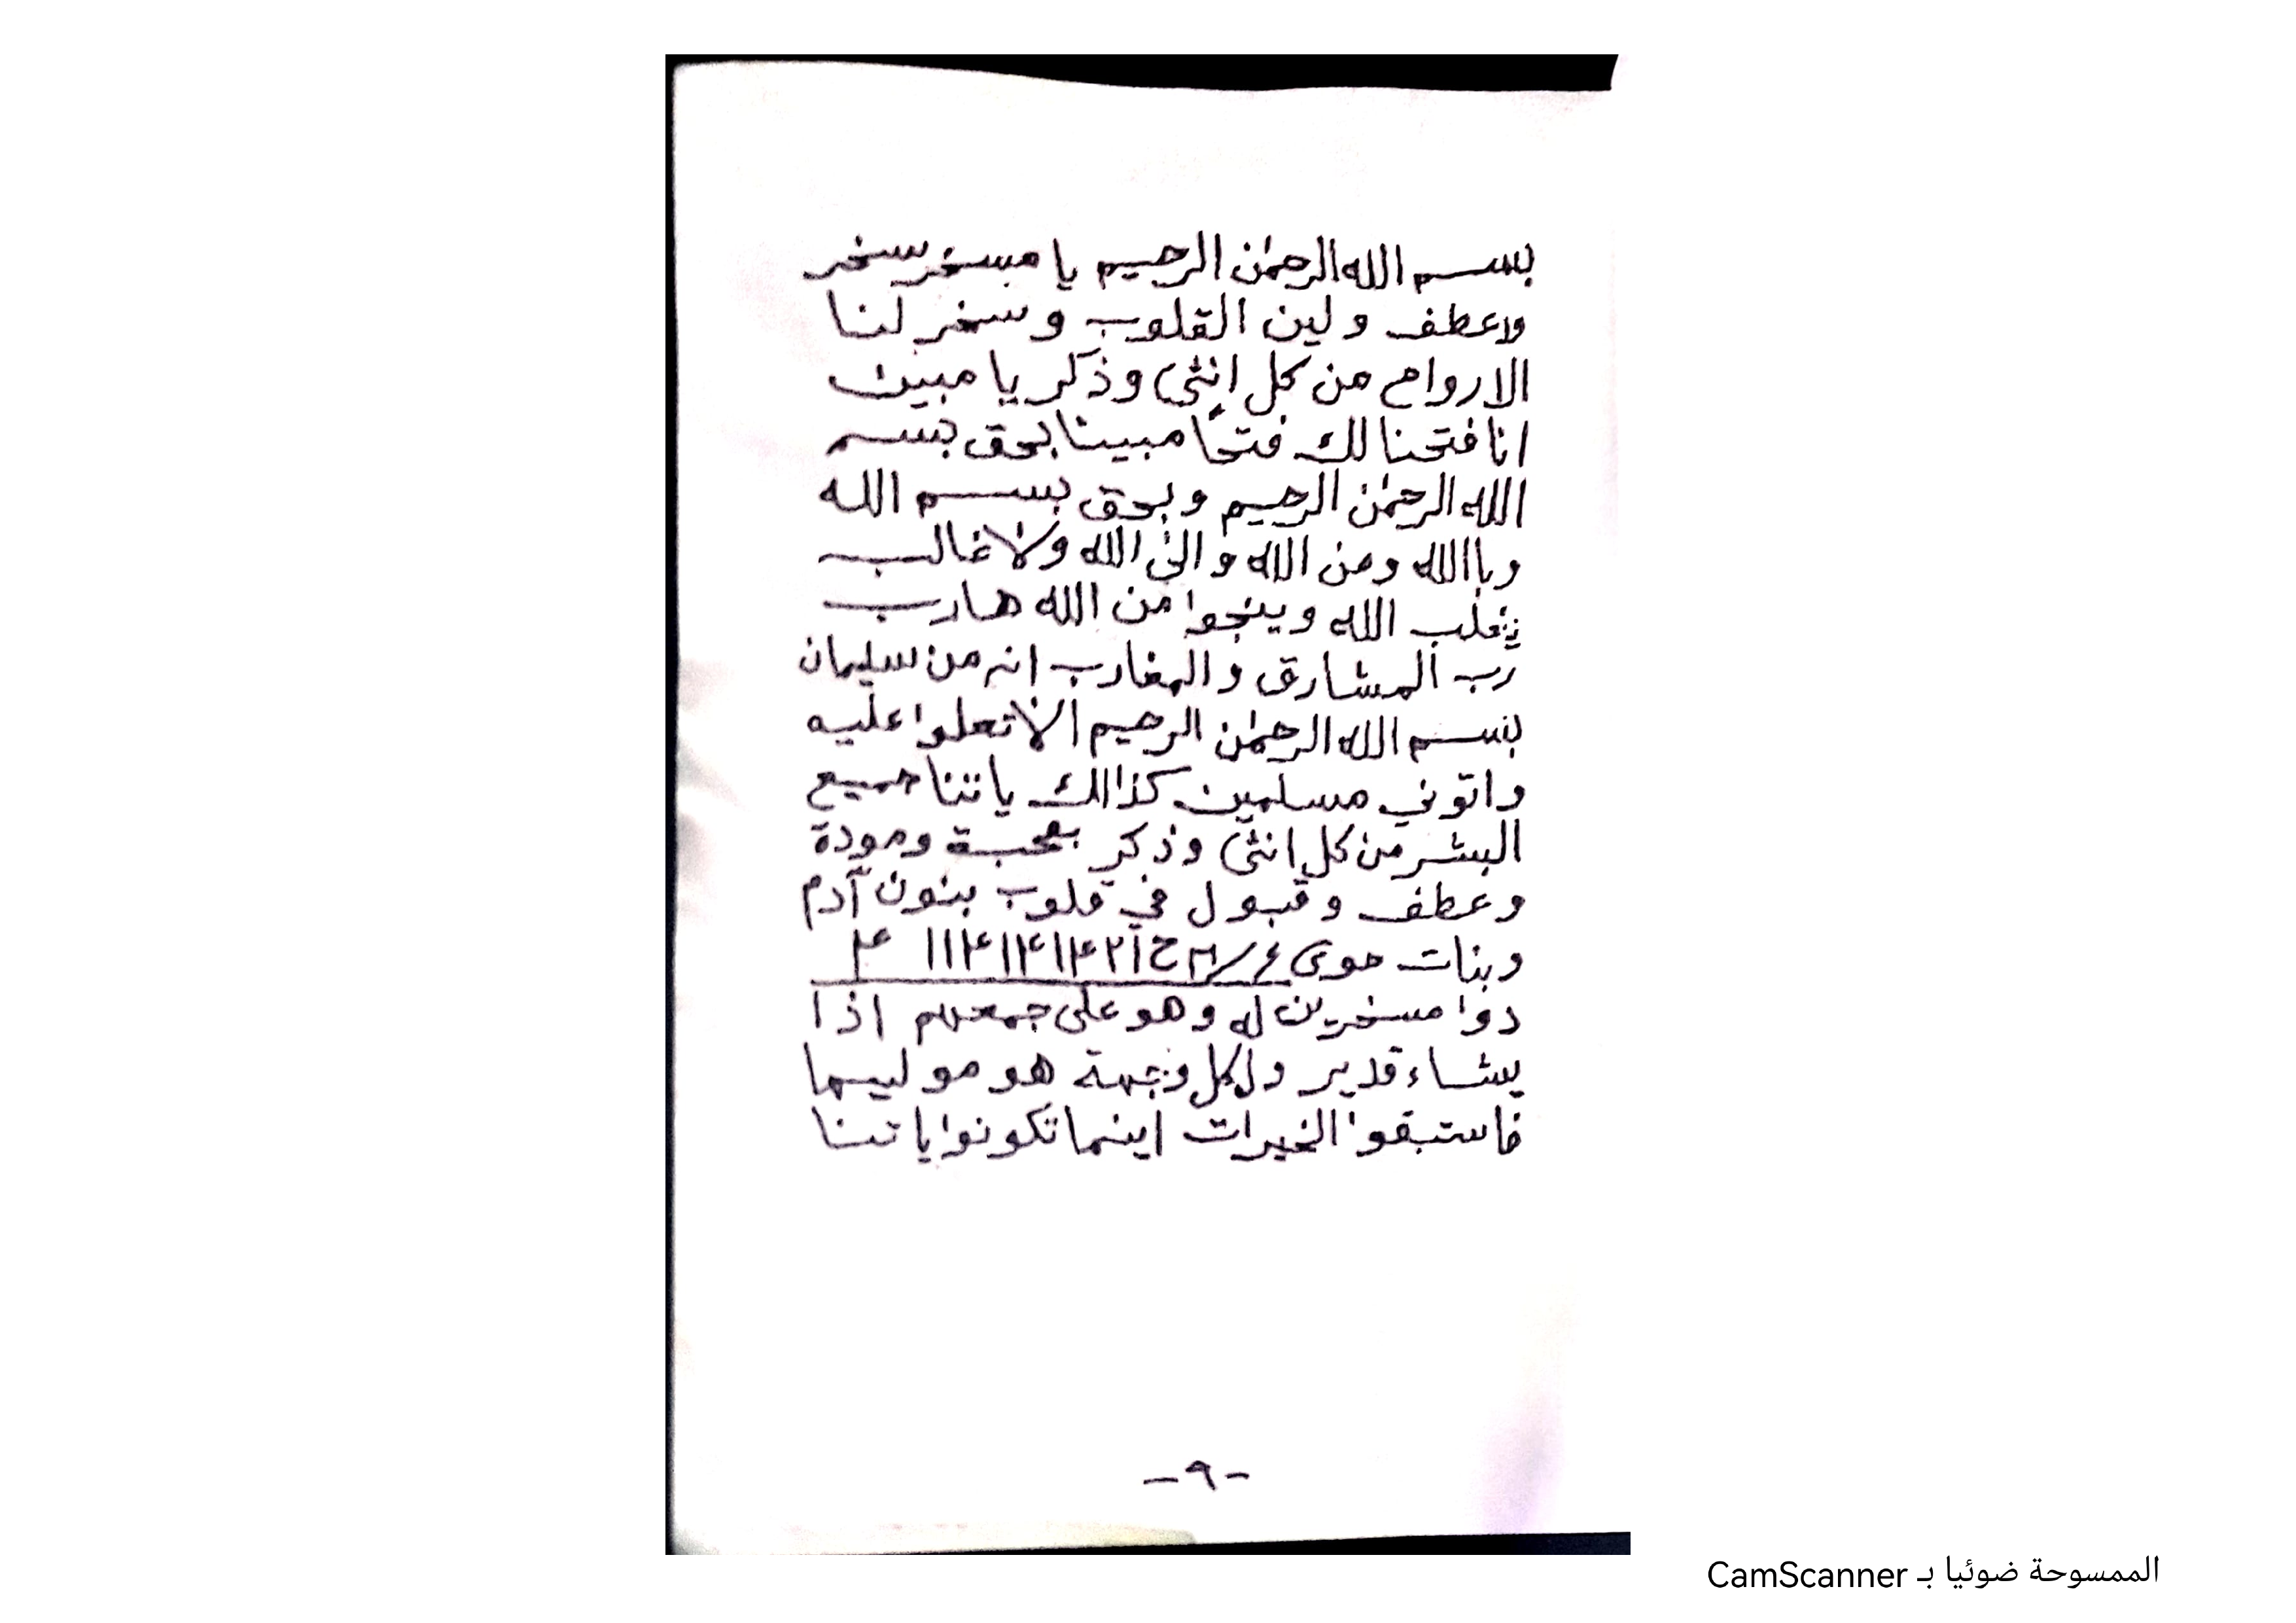 بسم الله الرحمٰن الرحيم يا مسخر سخر
وعطف ولين القلوب وسخر لنا
الارواح من كل انثى وذكر يا مبين
انا فتحنا لك فتحًا مبينا بحق بسم
الله الرحمٰن الرحيم وبحق بسم الله
وباالله ومن الله والى الله ولا غالب
يغلب الله وينجوا من الله هارب
رب المشارق والمغارب انه من سليمان
بسم الله الرحمٰن الرحيم الا تعلوا عليه
واتوني مسلمين كذالك ياتنا جميع
البشر من كل انثى وذكر بمحبة ومودة
وعطف وقبول في قلوب بنون آدم
وبنات حوى
دوا مسخرين له وهو على جمعهم اذا
يشاء قدير ولكل وجهة هو موليها
فاستبقوا الخيرات اينما تكونوا ياتنا
-٩-
الممسوحة ضوئيا بـ CamScanner